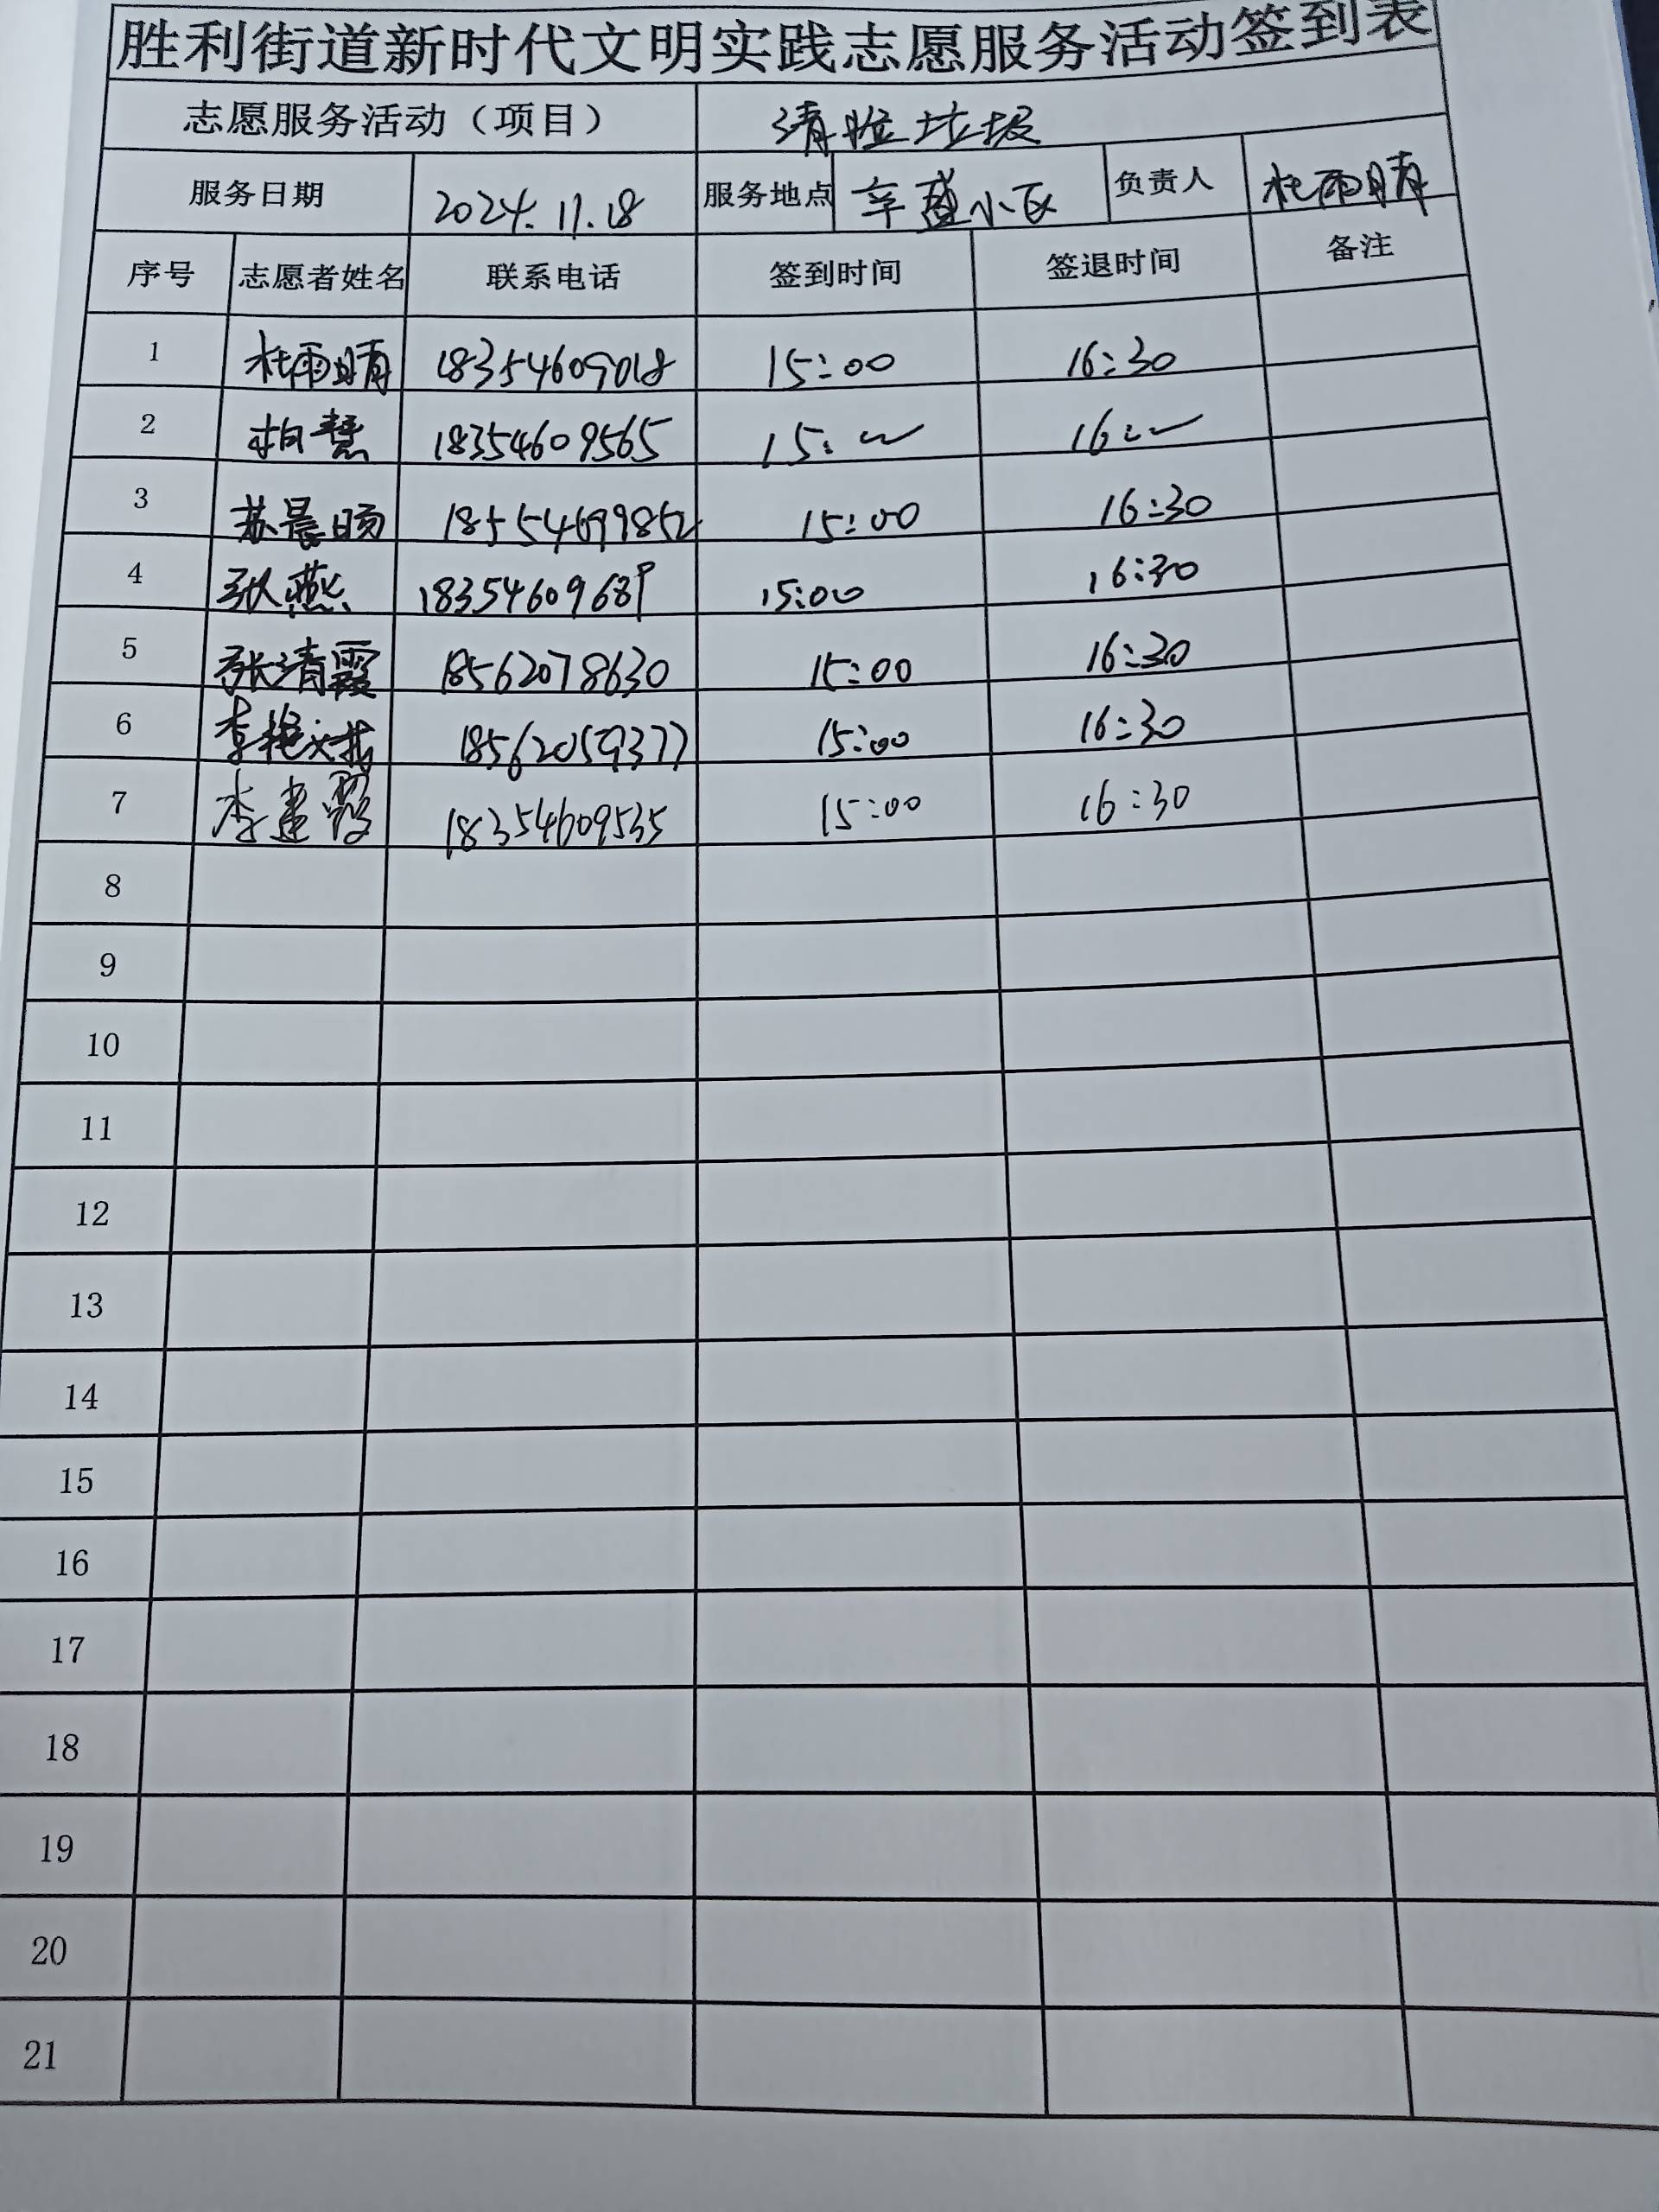 胜利街道新时代文明实践志愿服务活动签到表
志愿服务活动（项目） 清捡垃圾
服务日期 2024.11.18 服务地点 辛盛小区 负责人 杜雨晴
序号 志愿者姓名 联系电话 签到时间 签退时间 备注
1 杜雨晴 18354609018 15:00 16:30
2 柏慧 18354609565 15: 16:
3 苏晨旸 15:00 16:30
4 张燕 18354609689 15:00 16:30
5 张清霞 18562078630 15:00 16:30
6 李艳 18562059377 15:00 16:30
7 李建霞 18354609535 15:00 16:30
8
9
10
11
12
13
14
15
16
17
18
19
20
21